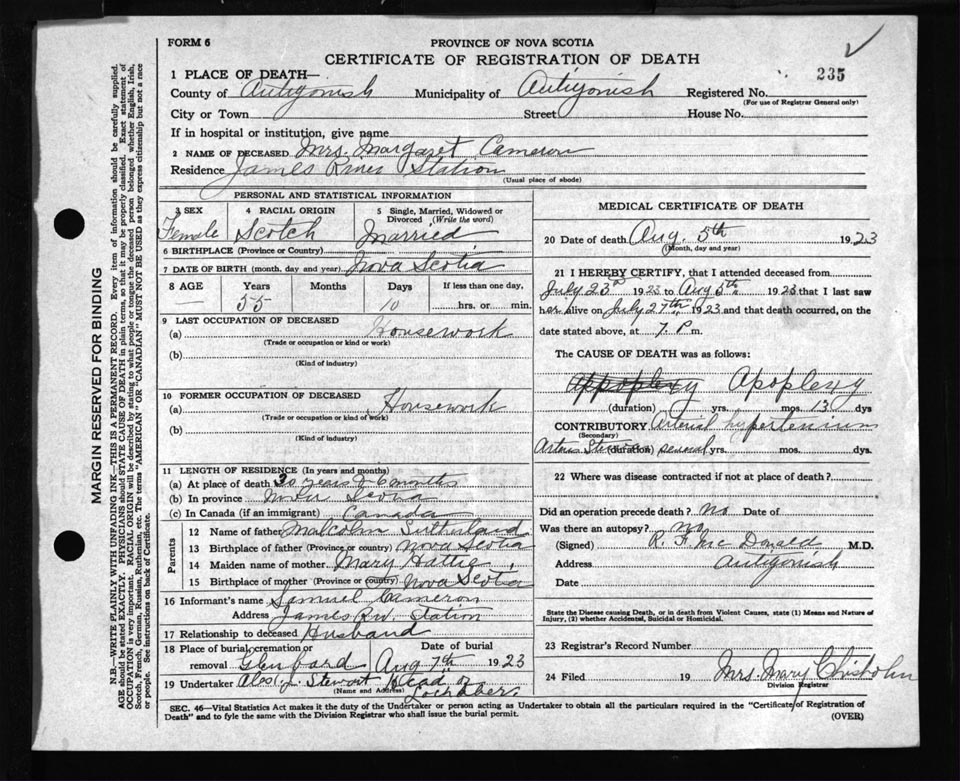 FORM 6
PROVINCE OF NOVA SCOTIA
CERTIFICATE OF REGISTRATION OF DEATH
235
1 PLACE OF DEATH—
County of Antigonish Municipality of Antigonish Registered No.
(For use of Registrar General only)
City or Town Street House No.
If in hospital or institution, give name
2 NAME OF DECEASED Mrs. Margaret Cameron
Residence James River Station
(Usual place of abode)
PERSONAL AND STATISTICAL INFORMATION
3 SEX 4 RACIAL ORIGIN 5 Single, Married, Widowed or Divorced (Write the word)
Female Scotch Married
6 BIRTHPLACE (Province or Country)
7 DATE OF BIRTH (month, day and year) Nova Scotia
8 AGE Years Months Days If less than one day,
55 10 hrs. or min.
9 LAST OCCUPATION OF DECEASED
(a) Housework
(Trade or occupation or kind or work)
(b)
(Kind of industry)
10 FORMER OCCUPATION OF DECEASED
(a) Housework
(Trade or occupation or kind of work)
(b)
(Kind of industry)
11 LENGTH OF RESIDENCE (In years and months)
(a) At place of death 30 years & 6 months
(b) In province Nova Scotia
(c) In Canada (if an immigrant) Canada
Parents
12 Name of father Malcolm Sutherland
13 Birthplace of father (Province or country) Nova Scotia
14 Maiden name of mother Mary Hattie
15 Birthplace of mother (Province or country) Nova Scotia
16 Informant's name Samuel Cameron
Address James Riv. Station
17 Relationship to deceased Husband
18 Place of burial, cremation or removal Glenbard Date of burial Aug 7th 1923
19 Undertaker Stewart Head of Lochaber
(Name and Address)
MEDICAL CERTIFICATE OF DEATH
20 Date of death Aug. 5th 1923
(Month, day and year)
21 I HEREBY CERTIFY, that I attended deceased from
July 23rd 1923 to Aug 5th 1923 that I last saw
her alive on July 27th 1923 and that death occurred, on the
date stated above, at 7. P. m.
The CAUSE OF DEATH was as follows:
Appoplexy Apoplexy
(duration) yrs. mos. 13 dys
CONTRIBUTORY Arterial hypertension
(Secondary)
(duration) several yrs. mos. dys.
22 Where was disease contracted if not at place of death?
Did an operation precede death? No Date of
Was there an autopsy? No
(Signed) R. F. McDonald M.D.
Address Antigonish
Date
State the Disease causing Death, or in death from Violent Causes, state (1) Means and Nature of
Injury, (2) whether Accidental, Suicidal or Homicidal.
23 Registrar's Record Number
24 Filed 19 Mrs. Mary Chisholm
Division Registrar
SEC. 46—Vital Statistics Act makes it the duty of the Undertaker or person acting as Undertaker to obtain all the particulars required in the "Certificate of Registration of
Death" and to fyle the same with the Division Registrar who shall issue the burial permit.
(OVER)
MARGIN RESERVED FOR BINDING
N.B.—WRITE PLAINLY WITH UNFADING INK—THIS IS A PERMANENT RECORD. Every item of information should be carefully supplied.
AGE should be stated EXACTLY. PHYSICIANS should STATE CAUSE OF DEATH in plain terms, so that it may be properly classified. Exact statement of
OCCUPATION is very important. RACIAL ORIGIN will be described by stating to what people or tongue the deceased person belonged whether English, Irish,
Scotch, French, German, Russian, Ruthenian, etc. The terms "AMERICAN" OR "CANADIAN" MUST NOT BE USED as they express citizenship but not a race
or people. See instructions on back of Certificate.